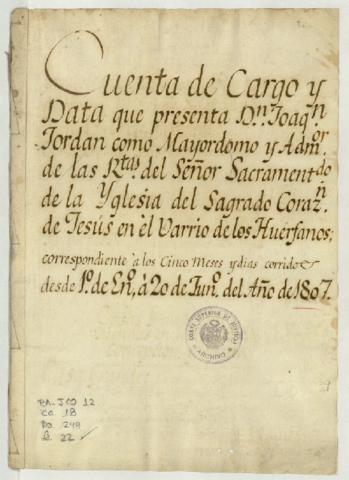 Cuenta de Cargo y
Data que presenta Dn. Joaqn.
Jordan como Mayordomo y Admor.
de las Rtas. del Señor Sacramentdo
de la Yglesia del Sagrado Corazn.
de Jesús en el Varrio de los Huerfanos;
correspondiente à los Cinco Meses y dias corridos
desde 1º. de Enº. à 20 de Junº. del Año de 1807.
CORTE SUPERIOR DE JUSTICIA
ARCHIVO
PA-JCO 12
Ca 18
Do 249
fs 22